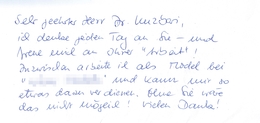 Sehr geehrter Herr Dr. Kürzbasi,
ich denke jeden Tag an Sie – und
freue mich an Ihrer "Arbeit"!
Inzwischen arbeite ich als Model bei
" " und kann mir so
etwas dazu verdienen. Ohne Sie wäre
das nicht möglich! Vielen Danke!